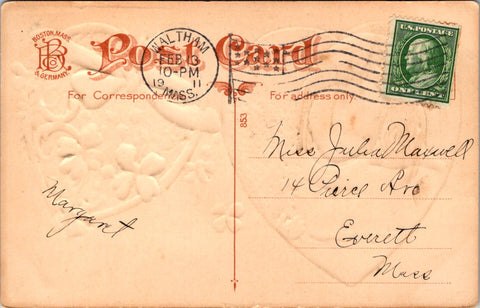 BOSTON, MASS.
B Co
& GERMANY.
Post Card
WALTHAM
FEB 13
10-PM
19 11
MASS.
U.S. POSTAGE
ONE CENT
For Correspondence
For address only.
853
Miss Julia Maxwell
14 Pierce Ave
Everett
Mass
Margaret